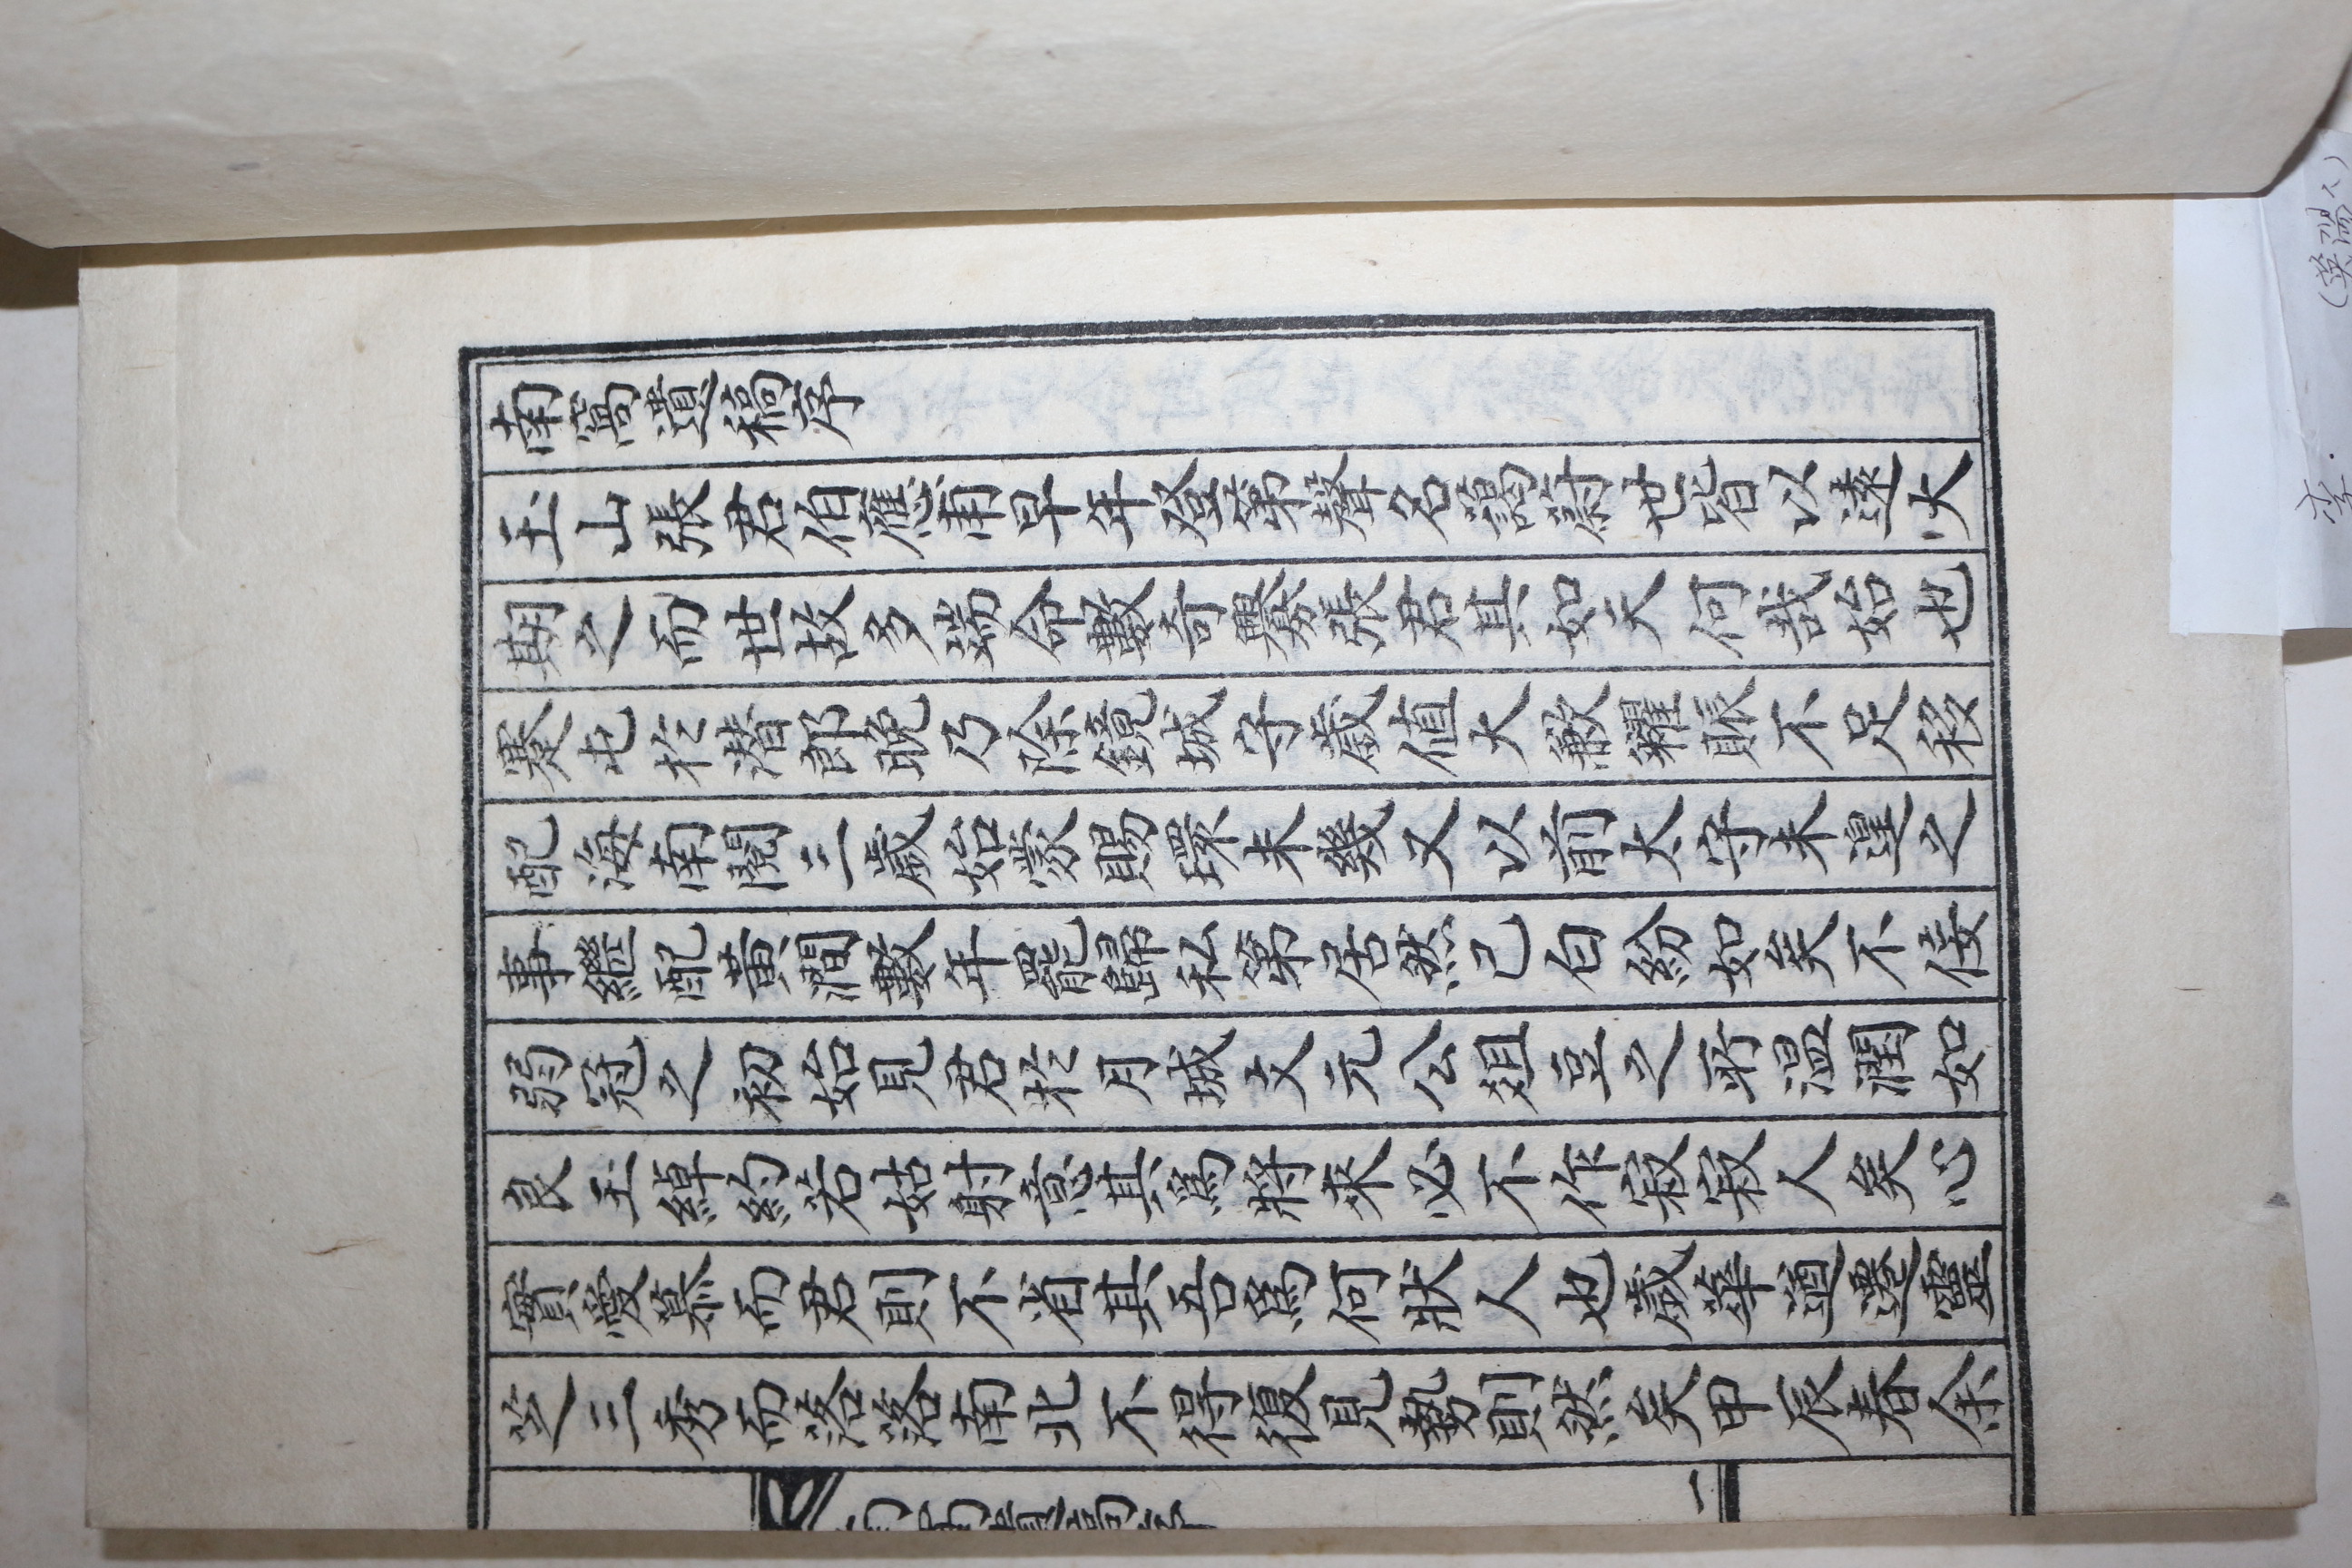 南窩遺稿序
玉山張君伯應甫早年登第聲名藹蔚世皆以遠大
期之而世故多端命數奇釁張君其如天何哉始也
蹇屯於潛郎晚乃除鏡城守歲値大歉糶賑不足移
配海南閱三歲始蒙賜環未幾又以前太守未遑之
事繼配黃澗數年罷歸私第居然已白紛如矣不佞
弱冠之初始見君於月城文元公俎豆之所溫潤如
良玉綽約若姑射意其爲將來必不作寂寂人矣心
實愛慕而君則不省其吾爲何狀人也歲華遒遷靈
芝三秀而落落南北不得復見勢則然矣甲辰春余
一
李
(英陽人)